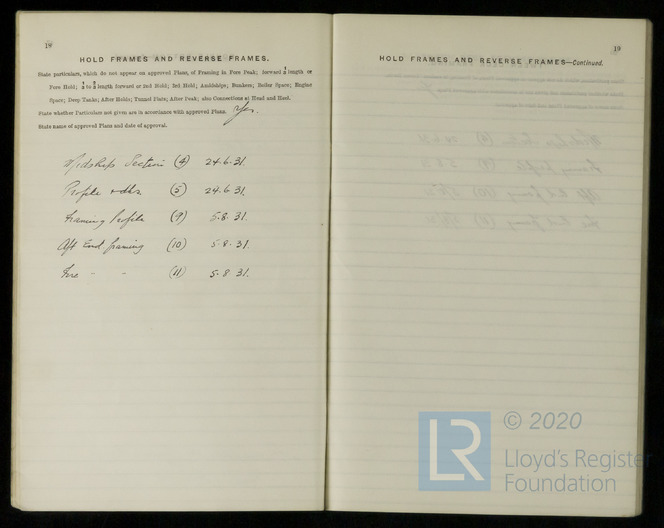 18
HOLD FRAMES AND REVERSE FRAMES.
State particulars, which do not appear on approved Plans, of Framing in Fore Peak; forward ¼ length or
Fore Hold; ¼ to ⅜ length forward or 2nd Hold; 3rd Hold; Amidships; Bunkers; Boiler Space; Engine
Space; Deep Tanks; After Holds; Tunnel Flats; After Peak; also Connections at Head and Heel.
State whether Particulars not given are in accordance with approved Plans. Yes.
State name of approved Plans and date of approval.
Midships Section (4) 24.6.31.
Profile & dks (5) 24.6.31.
Framing Profile (9) 5.8.31.
Aft End framing (10) 5.8.31.
Fore - - (11) 5.8.31.
19
HOLD FRAMES AND REVERSE FRAMES—Continued.
LR
© 2020
Lloyd's Register
Foundation